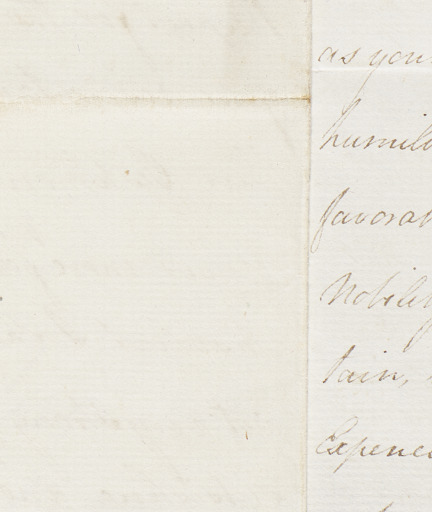 as you
humil
favora
Nobili
tain,
Expence